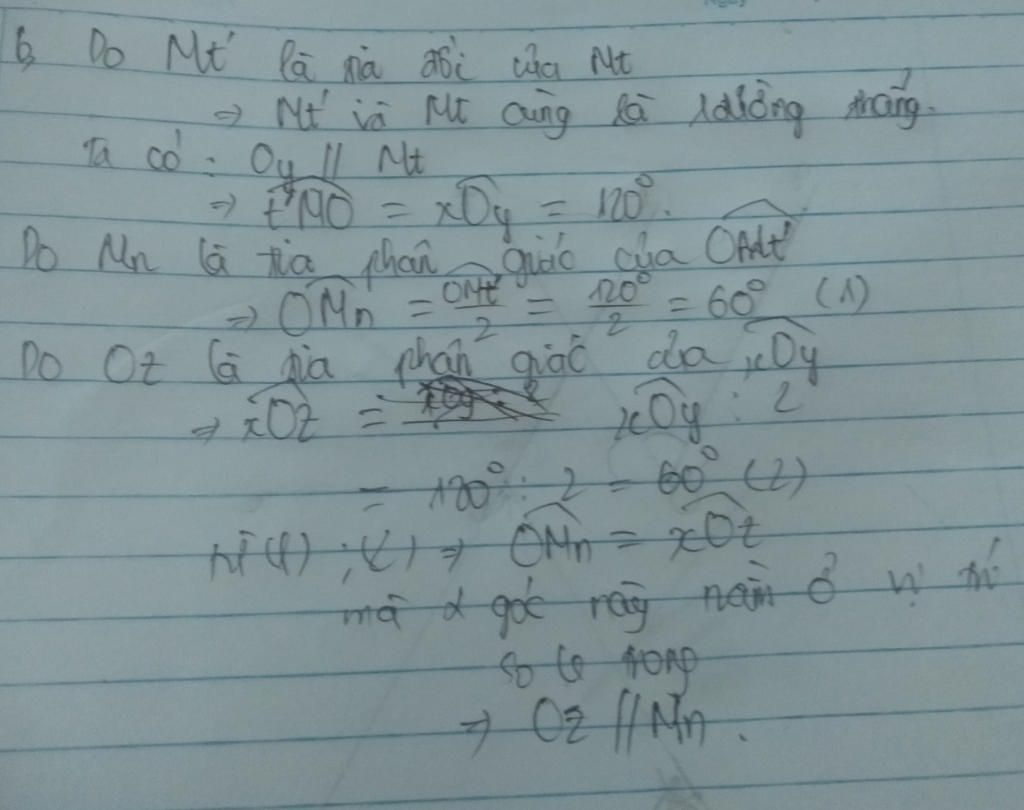 b, Do Mt' là tia đối của Mt
=> Mt' và Mt cùng là 1 đường thẳng.
Ta có : Oy // Mt
=> t'MO = xOy = 120°.
Do Mn là tia phân giác của OMt'
=> OMn = OMt'/2 = 120°/2 = 60° (1)
Do Oz là tia phân giác của xOy
=> xOz = xOy : 2
= 120° : 2 = 60° (2)
Từ (1) ; (2) => OMn = xOz
mà 2 góc này nằm ở vị trí
so le trong
=> Oz // Mn.